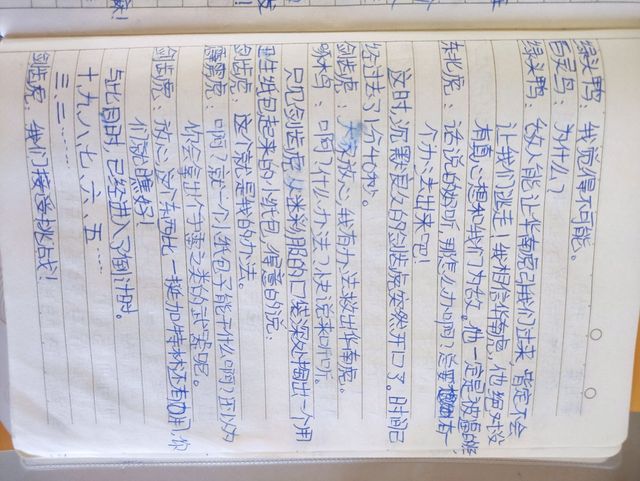 绿头鸭：我觉得不可能。
百灵鸟：为什么？
绿头鸭：敌人能让华南虎把我们过来，肯定不会
让我们逃走，我相信华南虎，他绝对没
有真心想和我们为敌。他一定是被逼的
东北虎：话说的好听，那怎么办啊？总要有
个办法出来吧！
这时，沉默良久的剑齿虎突然开口了。时间已
经过去了1分40秒。
剑齿虎：放心，我有办法救出华南虎。
啄木鸟：啊？什么办法？快说来听听。
只见剑齿虎从迷彩服的口袋深处掏出一个用
卫生纸包起来的小纸包，得意的说：
剑齿虎：这个就是我的办法。
孟加拉虎：啊？就一个小纸包子能干什么啊？还以为
你会拿出个手雷之类的武器呢。
剑齿虎：放心，这个东西比一挺加特林还有用，你
们就瞧好！
与此同时，已经进入了倒计时。
十、九、八、七、六、五……
三、二……
剑齿虎：我们接受挑战！